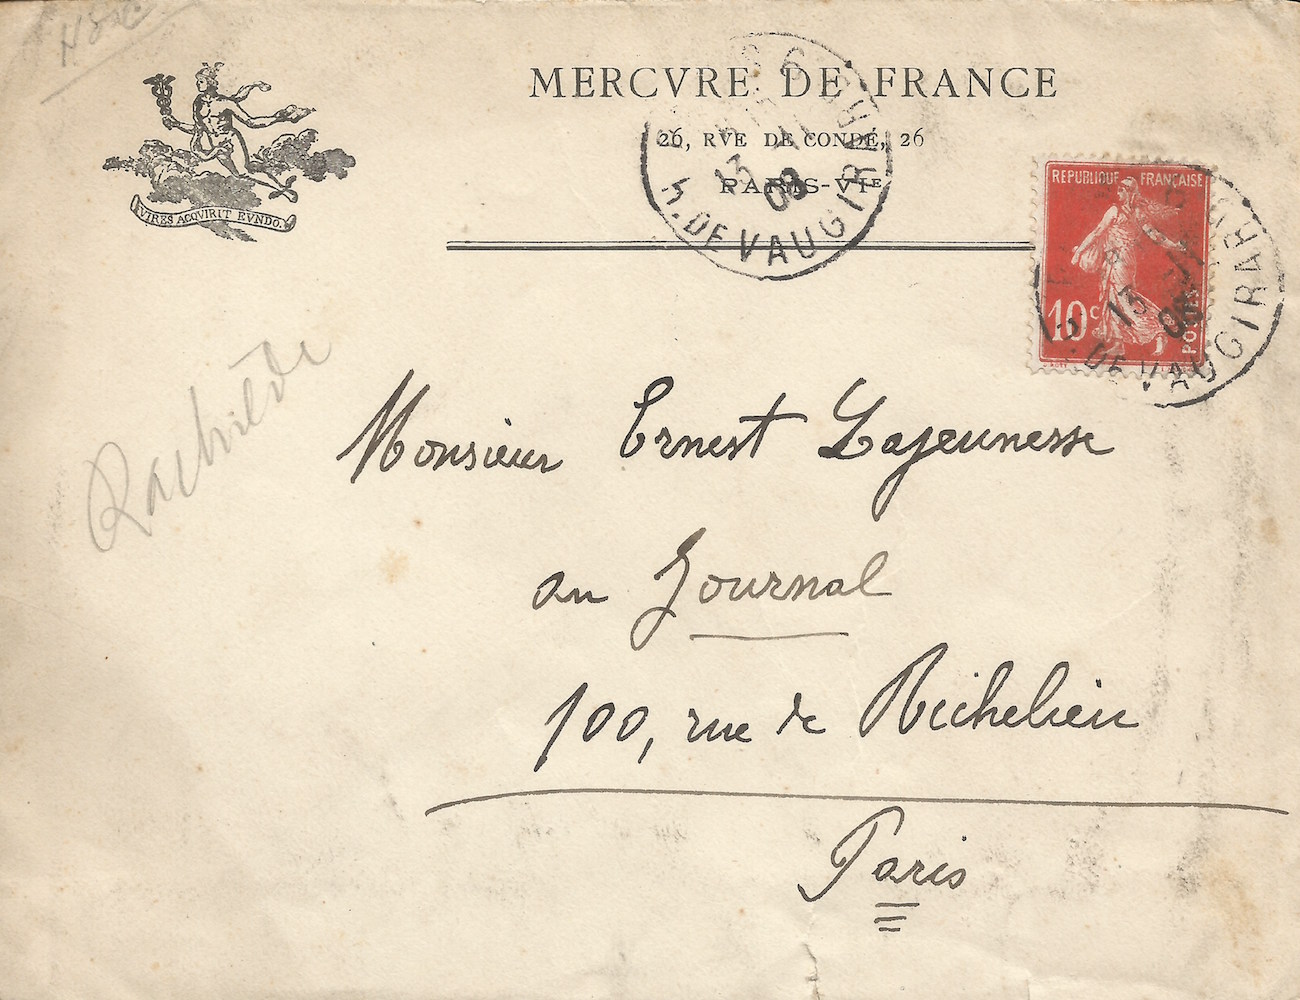 MERCVRE DE FRANCE
26, RVE DE CONDÉ, 26
PARIS-VIE
VIRES ACQVIRIT EVNDO.
13
09
R. DE VAUGIRARD
REPUBLIQUE FRANÇAISE
10c
POSTES
13
R. DE VAUGIRARD
Rachilde
Monsieur Ernest Lajeunesse
au Journal
100, rue de Richelieu
Paris